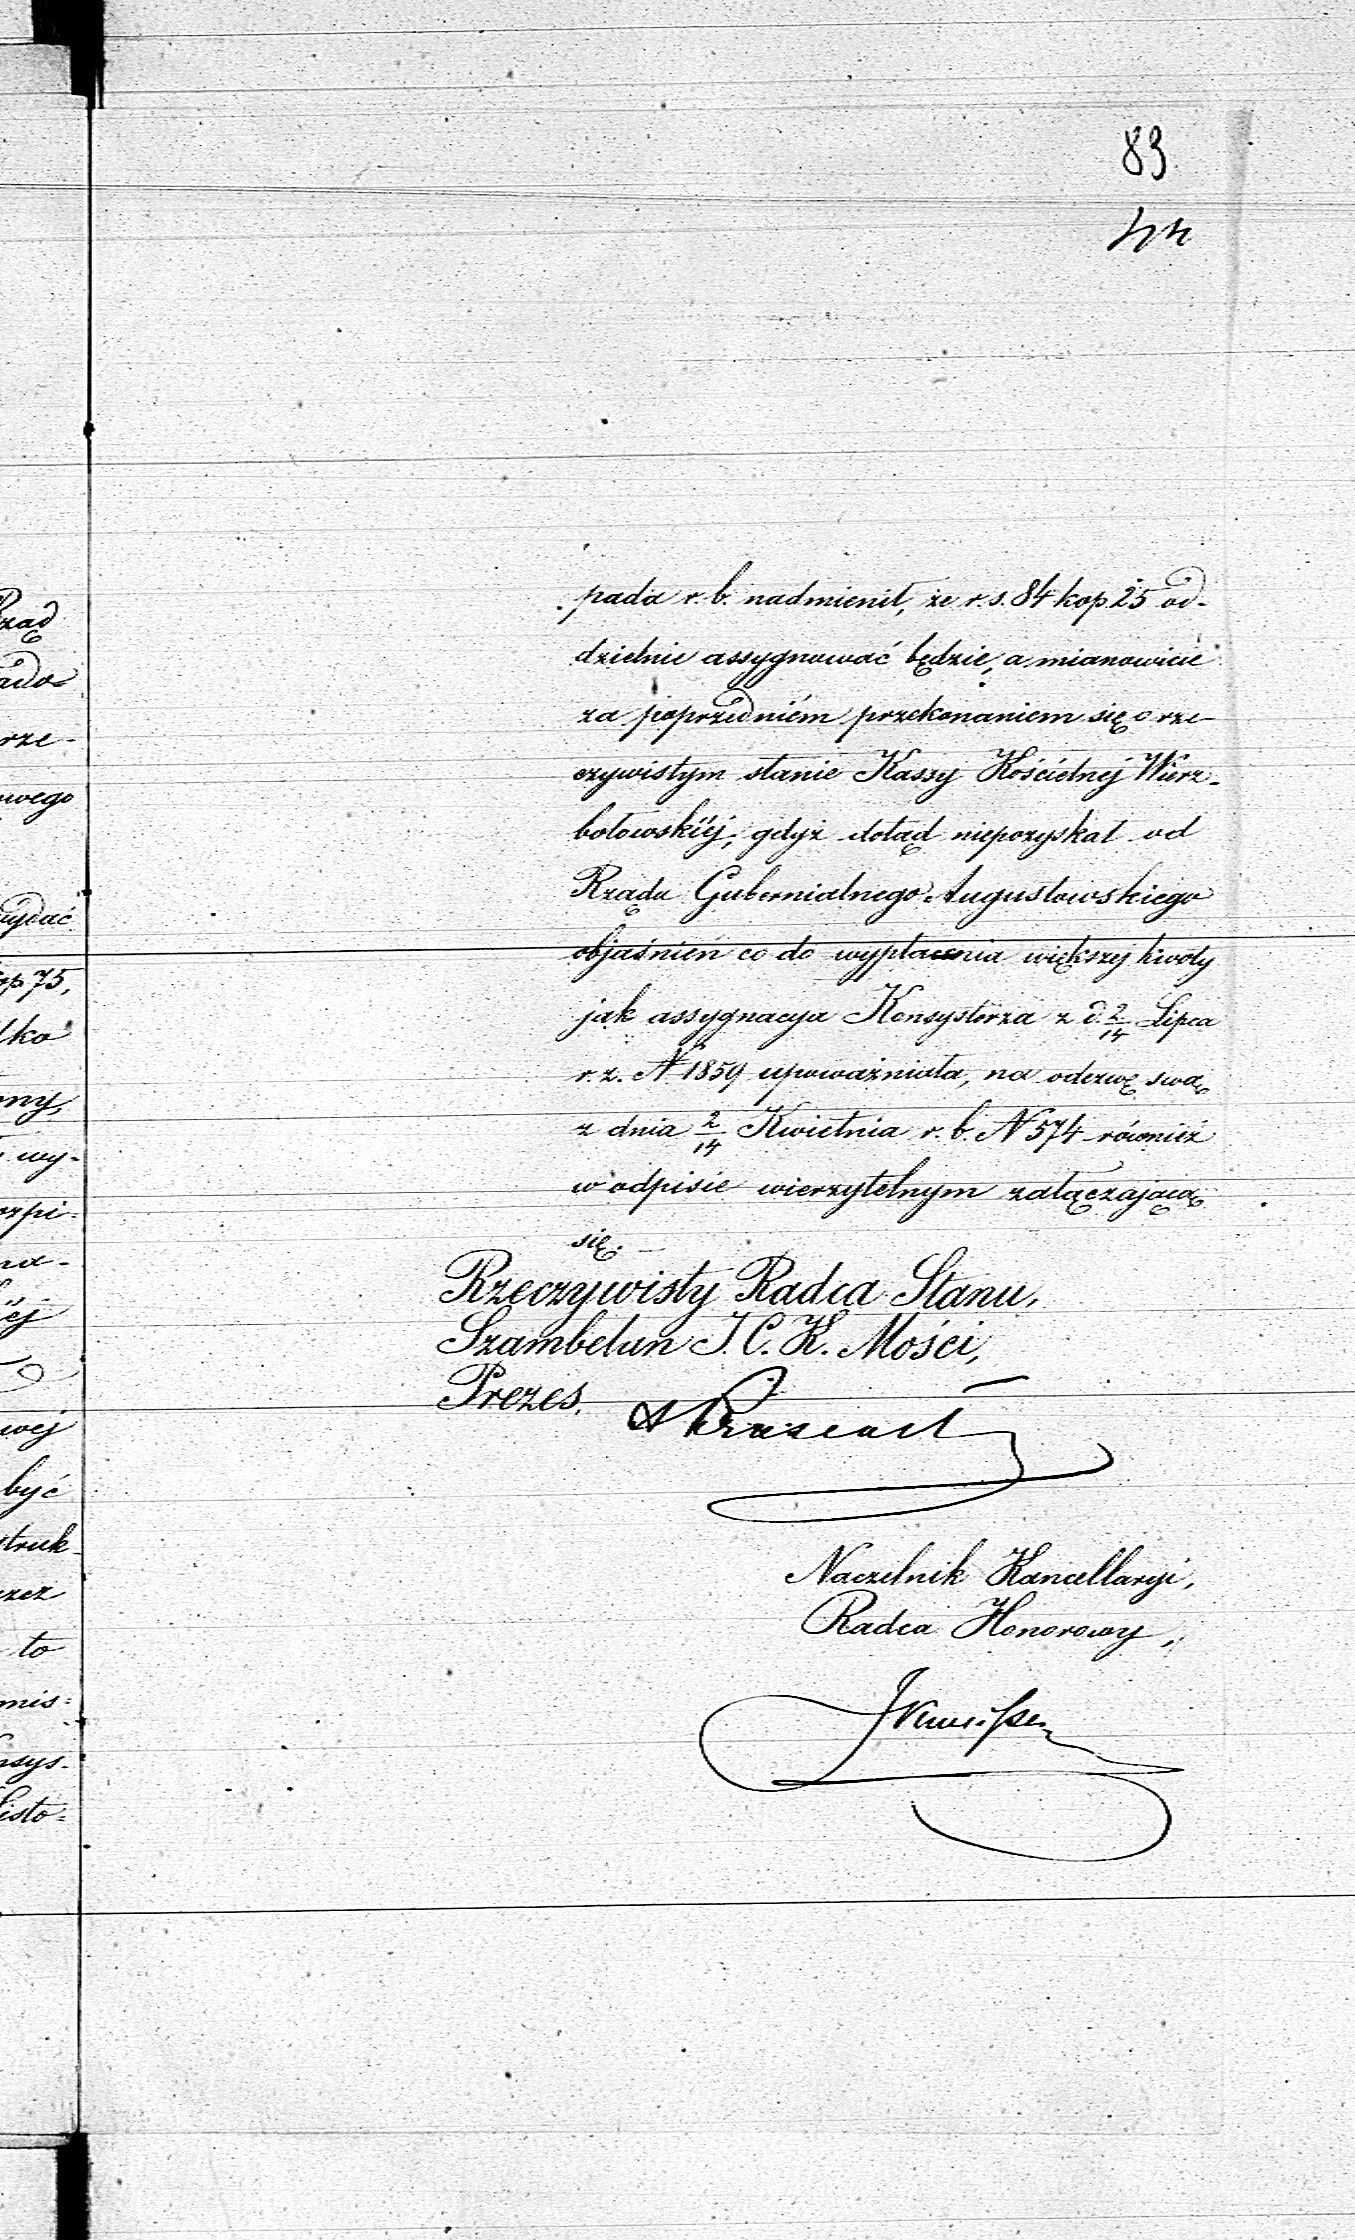 83
44
pada r. b. nadmienił, że r. s. 84 kop 25 od-
dzielnie assygnować będzie, a mianowicie
za poprzedniém przekonaniem się o rze-
czywistym stanie Kassy Kościelnej Wierz-
bołowskiéj, gdyż dotąd niepozyskał od
Rządu Gubernialnego Augustowskiego
objaśnień co do wypłacenia większej kwoty
jak assygnacya Konsystorza z d. 2/14 Lipca
r. z. N 1859 upoważniała, na odezwę swą
z dnia 2/14 Kwietnia r. b. N 574 również
w odpisie wierzytelnym załączającą
się. —
Rzeczywisty Radca Stanu,
Szambelan J. C. K. Mości,
Prezes.
Naczelnik Kancellaryi,
Radca Honorowy,
Rząd
ado-
rze-
owego
wydać
kop 75,
lko
ony,
wy-
ozpi-
na-
éj
wej
być
struk-
rzez
to
mis-
nsys-
Listo-